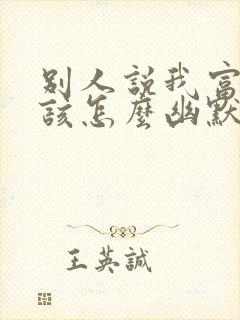 別人說我富
該怎麼幽默
王英誠